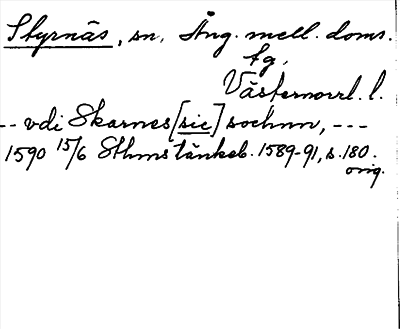 Styrnäs, sn, Ång. mell. doms.
tg.
Västernorrl. l.
-- vdi Skarnes [sic] sochnn, ---
1590 15/6 Sthms tänkeb. 1589-91, s. 180.
orig.